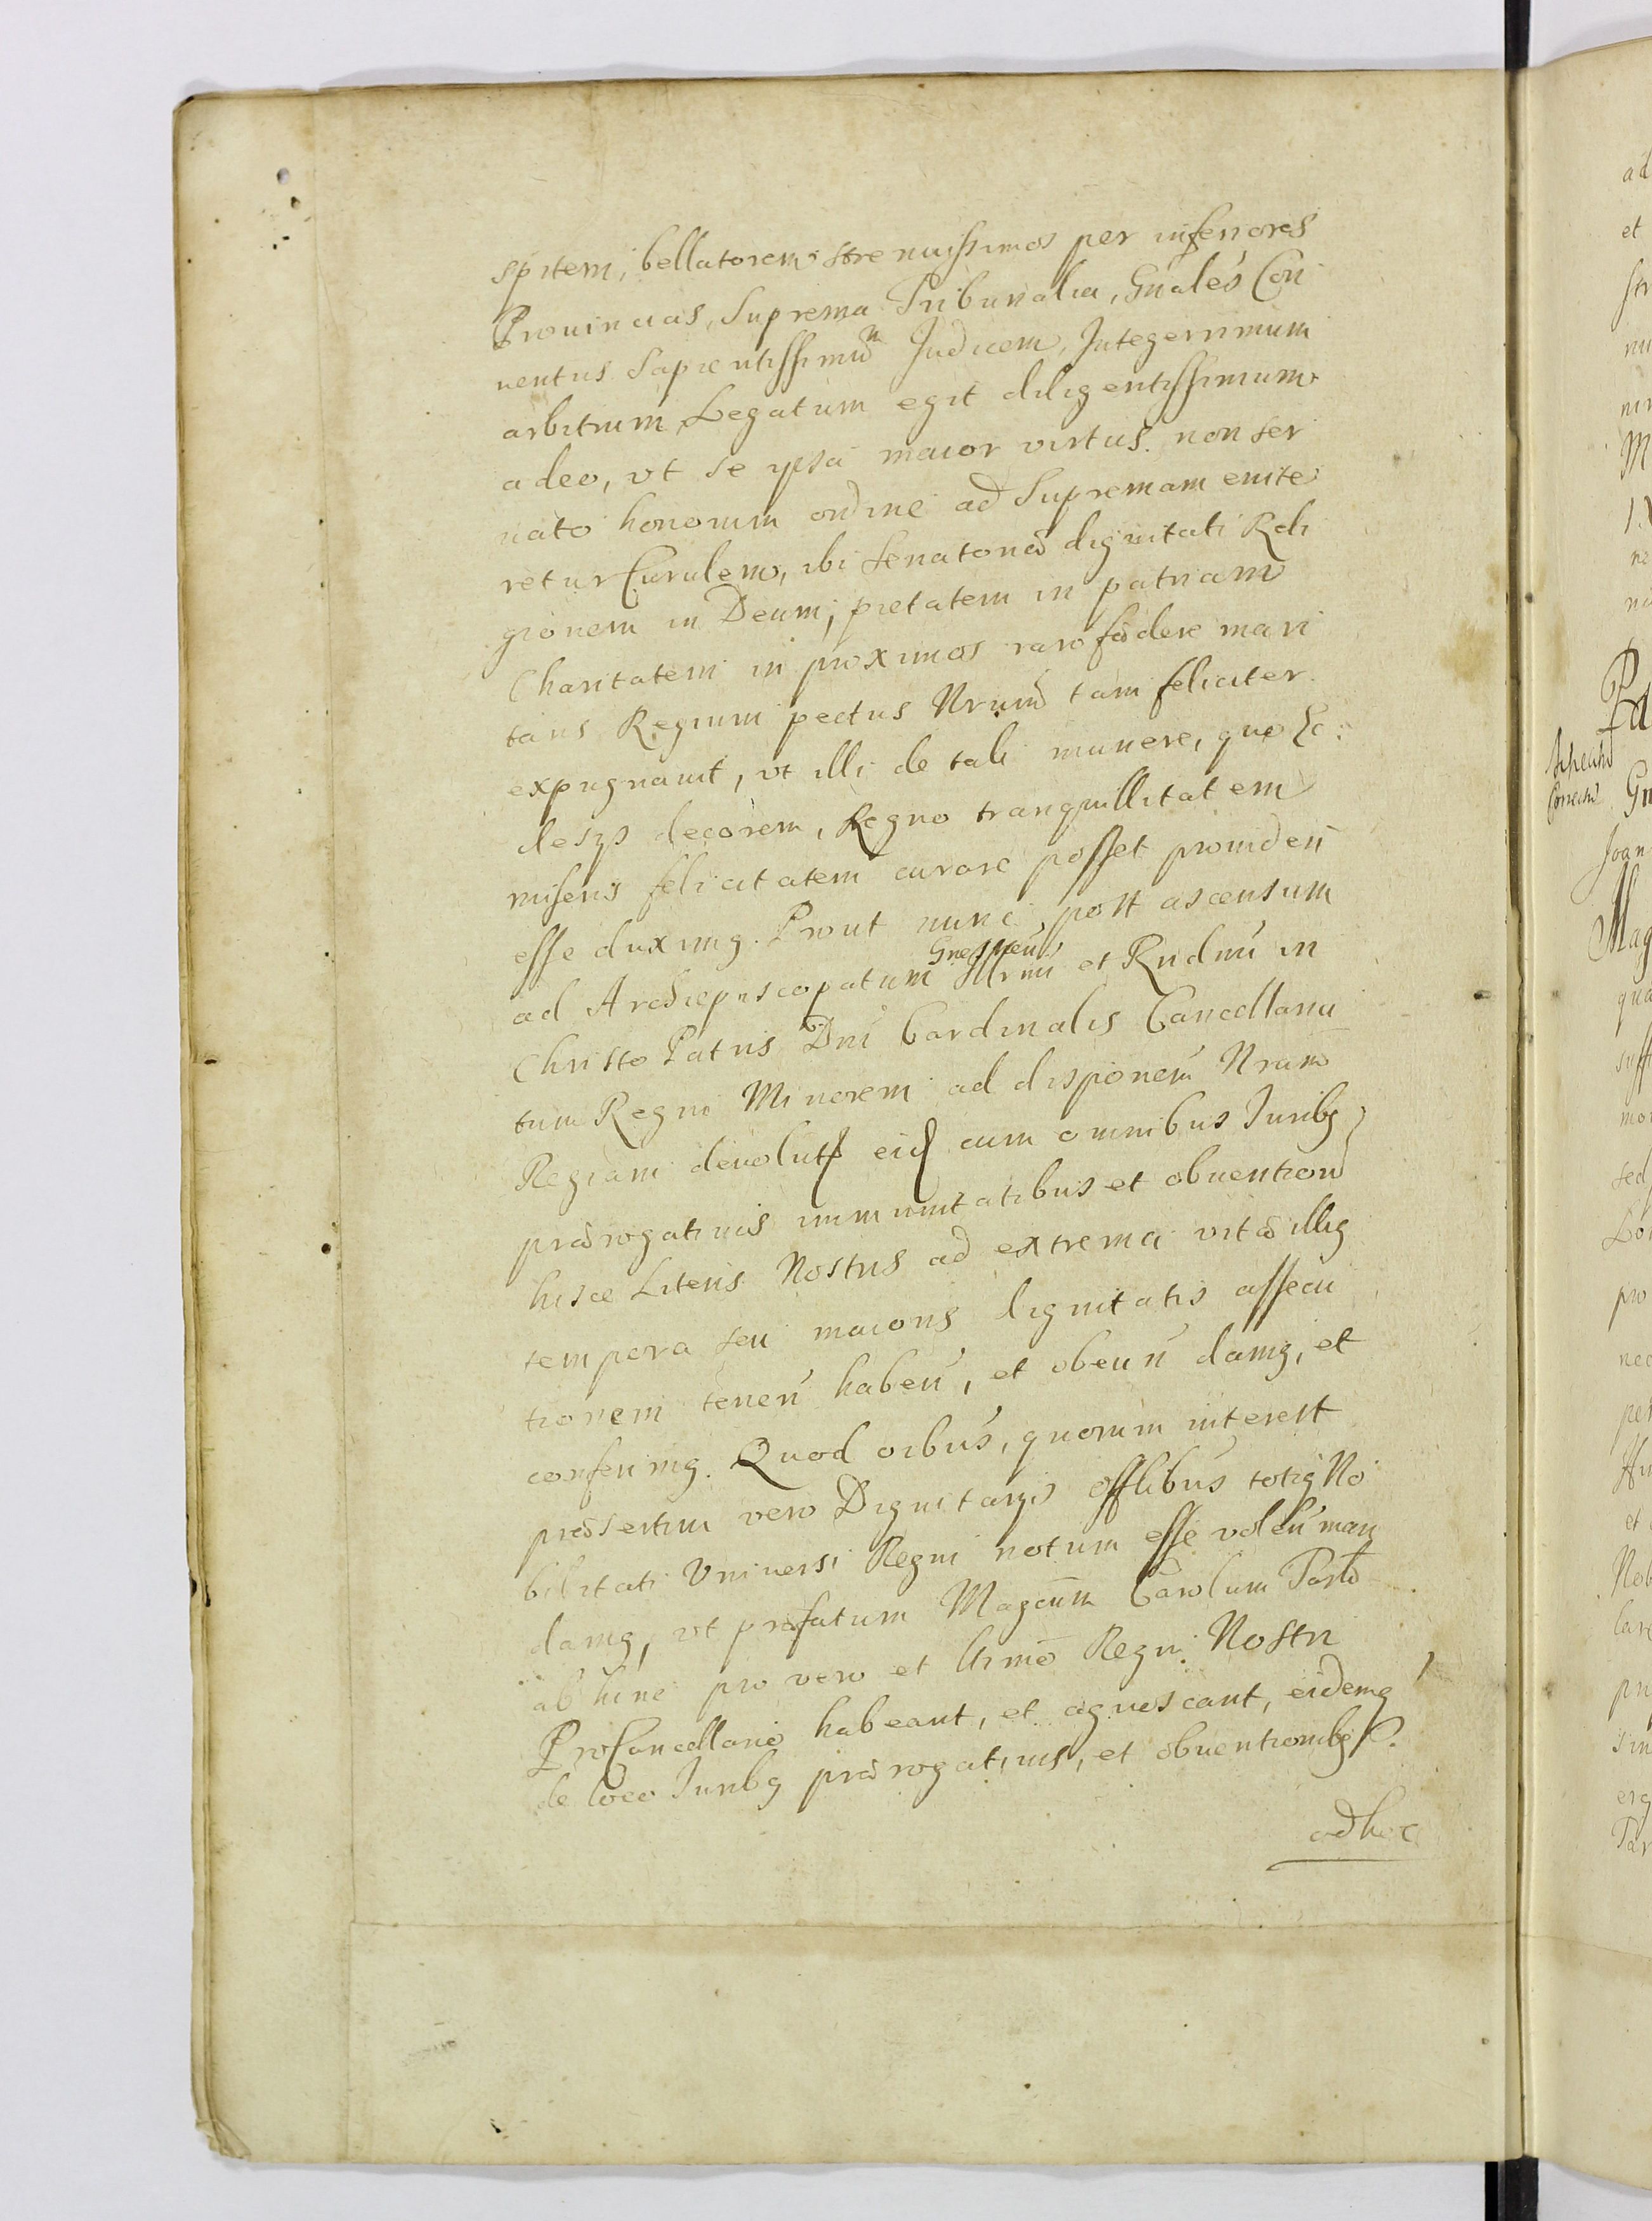 spitem, bellatorem strenuissimos per inferiores
Prouincias, Suprema Tribunalia, Gnales Con
uentus Sapientissimum Judicem, Integerrimum
arbitrum Legatum egit diligentissimum
adeo, vt se ipsa maior virtus. non ser
uato honorum ordine ad Supremam enite
retur Curulem, ibi Senatoriæ dignitati Reli
gionem in Deum, pietatem in patriam
Charitatem in proximos raro fœdere mari
tans Regium pectus Nrum tam feliciter
expugnauit, vt illi de tali munere, quo Ec
clesys decorem, Regno tranquillitatem
miseris felicitatem curare posset prouideñ
esse duximg. Prout nunc post ascensum
ad Archiepiscopatum Gnesneñ Illrmi et Rndmi in
Christo Patris Dni Cardinalis Cancellaria
tum Regni Minorem ad disponeñ Nram
Regiam deuolut eid cum omnibus Juribg
prærogatiuis immunitatibus et obuention
hisce Literis Nostris ad extrema vitæ illig
tempora seu maioris dignitatis assecu
tionem teneñ habeñ, et obeuñ damg, et
conferimg. Quod oibus, quorum interest
præsertim vero Dignitarys offlibus totig No
bilitati Vniuersi Regni notum esse voleñ man
damg, vt præfatum Magcum Carolum Tarło
ab hinc pro vero et ltimo Regni Nostri
ProCancellario habeant, et agnoscant, eidemg
de loco Juribg prærogatiuis, et obuentionibg
ad hoc